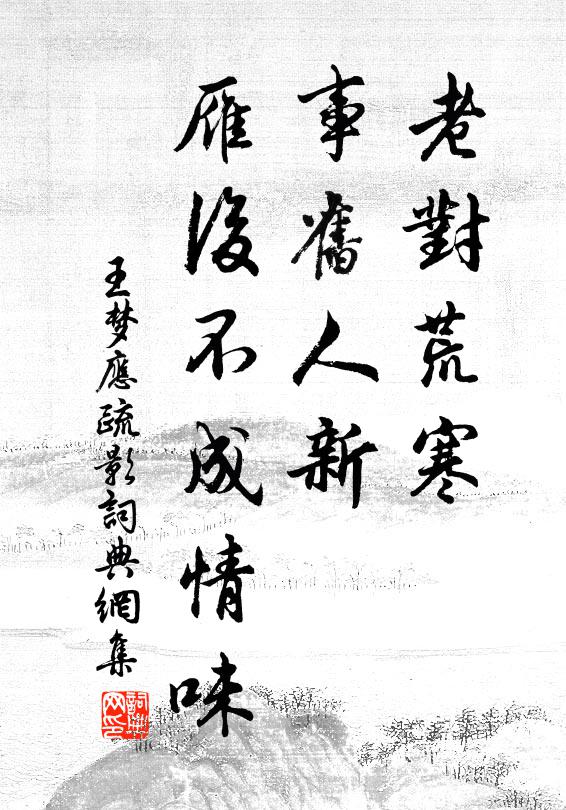 老對荒寒
事舊人新
雁後不成情味
王梦應疏影詞典網集